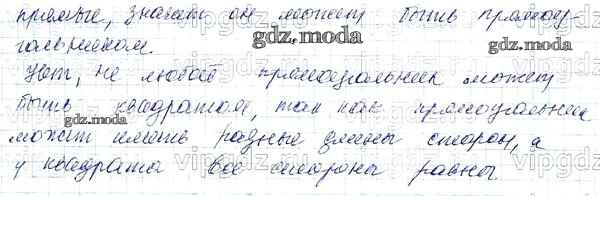 прямые, значит он может быть прямоу-
гольником.
gdz.moda
gdz.moda
Нет, не любой прямоугольник может
быть квадратом, так как прямоугольник
gdz.moda
может иметь разные длины сторон, а
у квадрата все стороны равны.